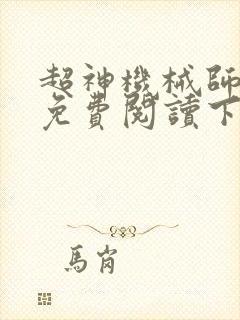 超神機械師
免費閱讀下
馬崗